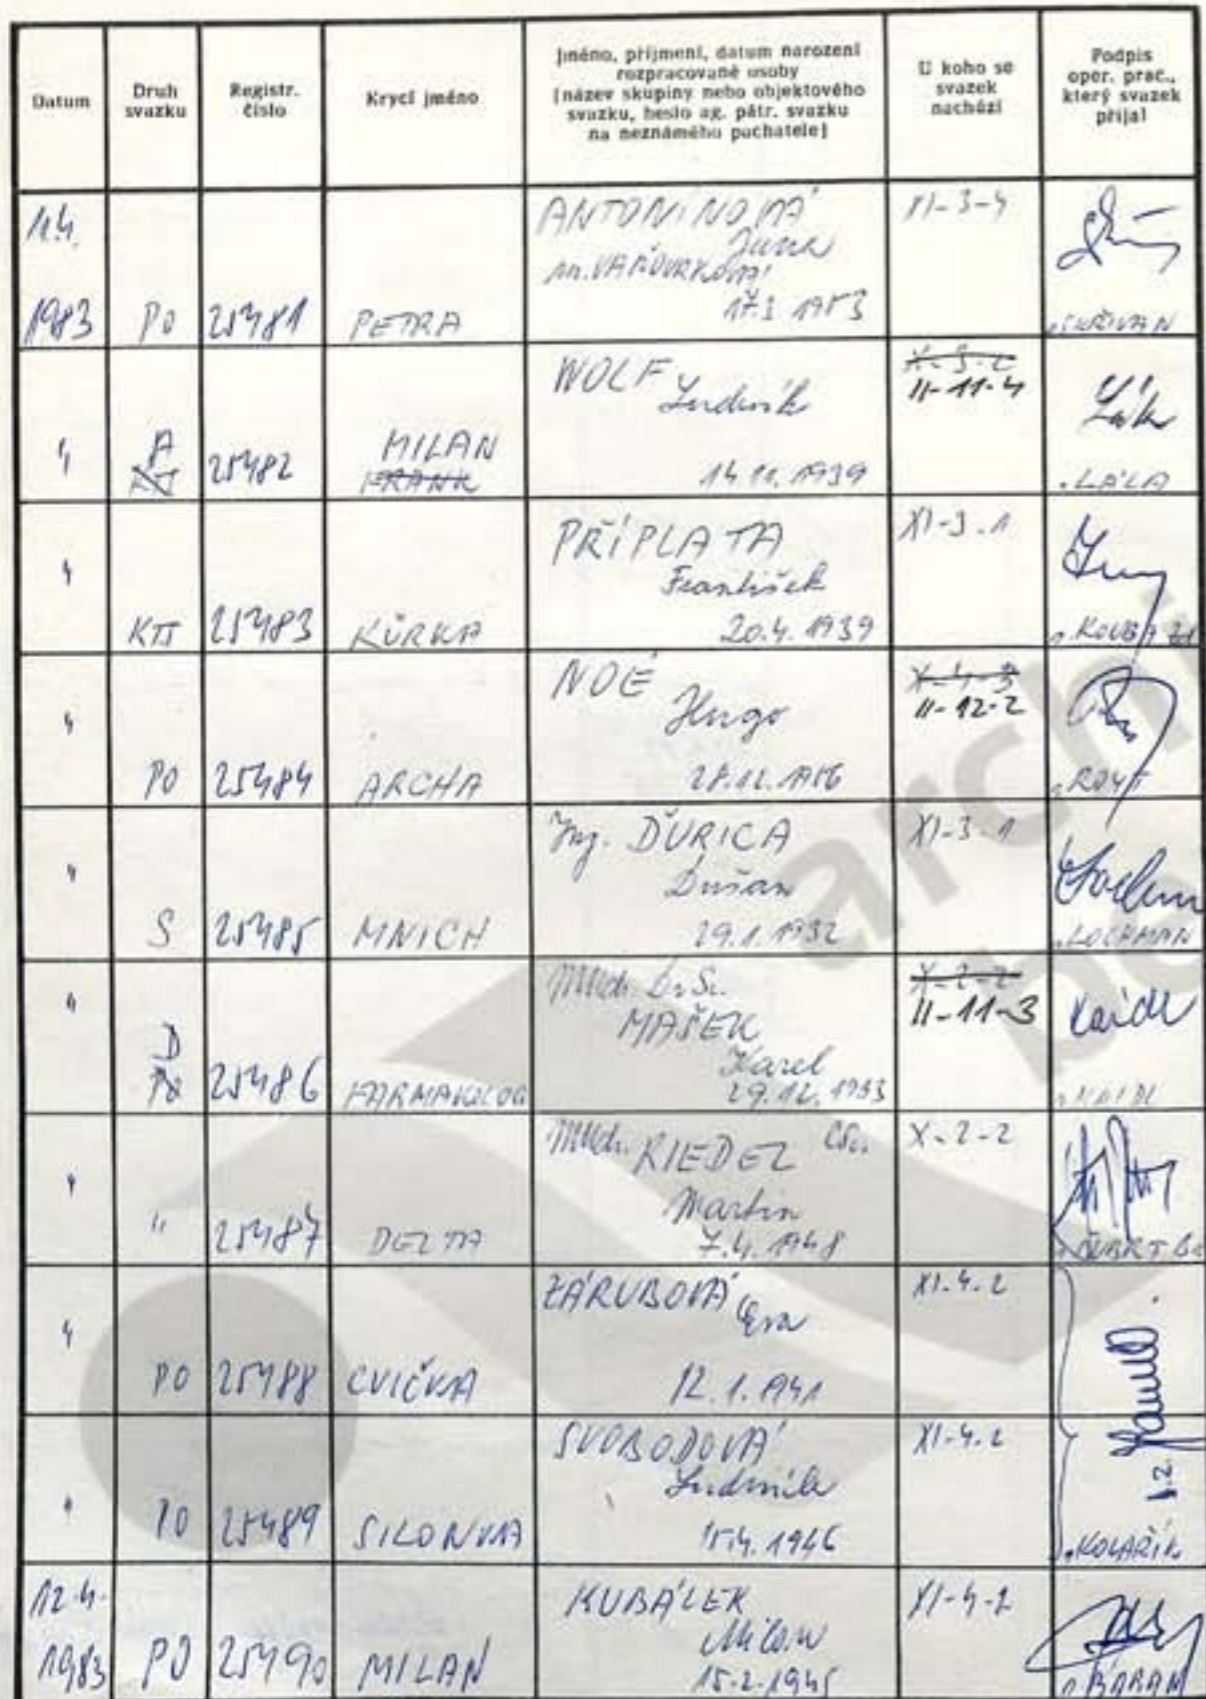 Datum
Druh
svazku
Registr.
číslo
Krycí jméno
Jméno, příjmení, datum narození
rozpracované osoby
(název skupiny nebo objektového
svazku, heslo ag. pátr. svazku
na neznámého pachatele)
U koho se
svazek
nachází
Podpis
oper. prac.,
který svazek
přijal
1.4.
1983 PO 25481 PETRA
ANTONÍNOVÁ
Jana
17.3 1953
XI-3-4
SKŘIVAN
" A 25482 MILAN
FRANK
WOLF Ludvík
14.11.1939
X-3-2
II-11-4
LÁLA
" KTS 25483 KŮRKA
PŘÍPLATA
František
20.4.1939
XI-3-1
" PO 25484 ARCHA
NOÉ
Hugo
28.12.1956
X-4-3
II-12-2
" S 25485 MNICH
Ing. ĎURICA
Dušan
29.1.1932
XI-3-1
LOCHMAN
" D 25486 FARMAKOLOG
MUDr. DrSc.
MAŠEK
Karel
29.12.1933
X-2-2
II-11-3
KAIDL
" " 25487 DELTA
MUDr. RIEDEL CSc.
Martin
7.4.1948
X-2-2
" PO 25488 CVIČKA
ZÁRUBOVÁ Eva
12.1.1941
XI-4-2
" PO 25489 SILONKA
SVOBODOVÁ
Ludmila
15.4.1946
XI-4-2
KOLAŘÍK
12.4.
1983 PO 25490 MILAN
KUBÁLEK
Milan
15.2.1945
XI-4-2
archi